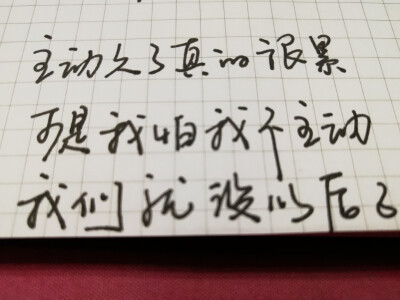 主动久了真的很累
可是我怕我不主动
我们就没以后了